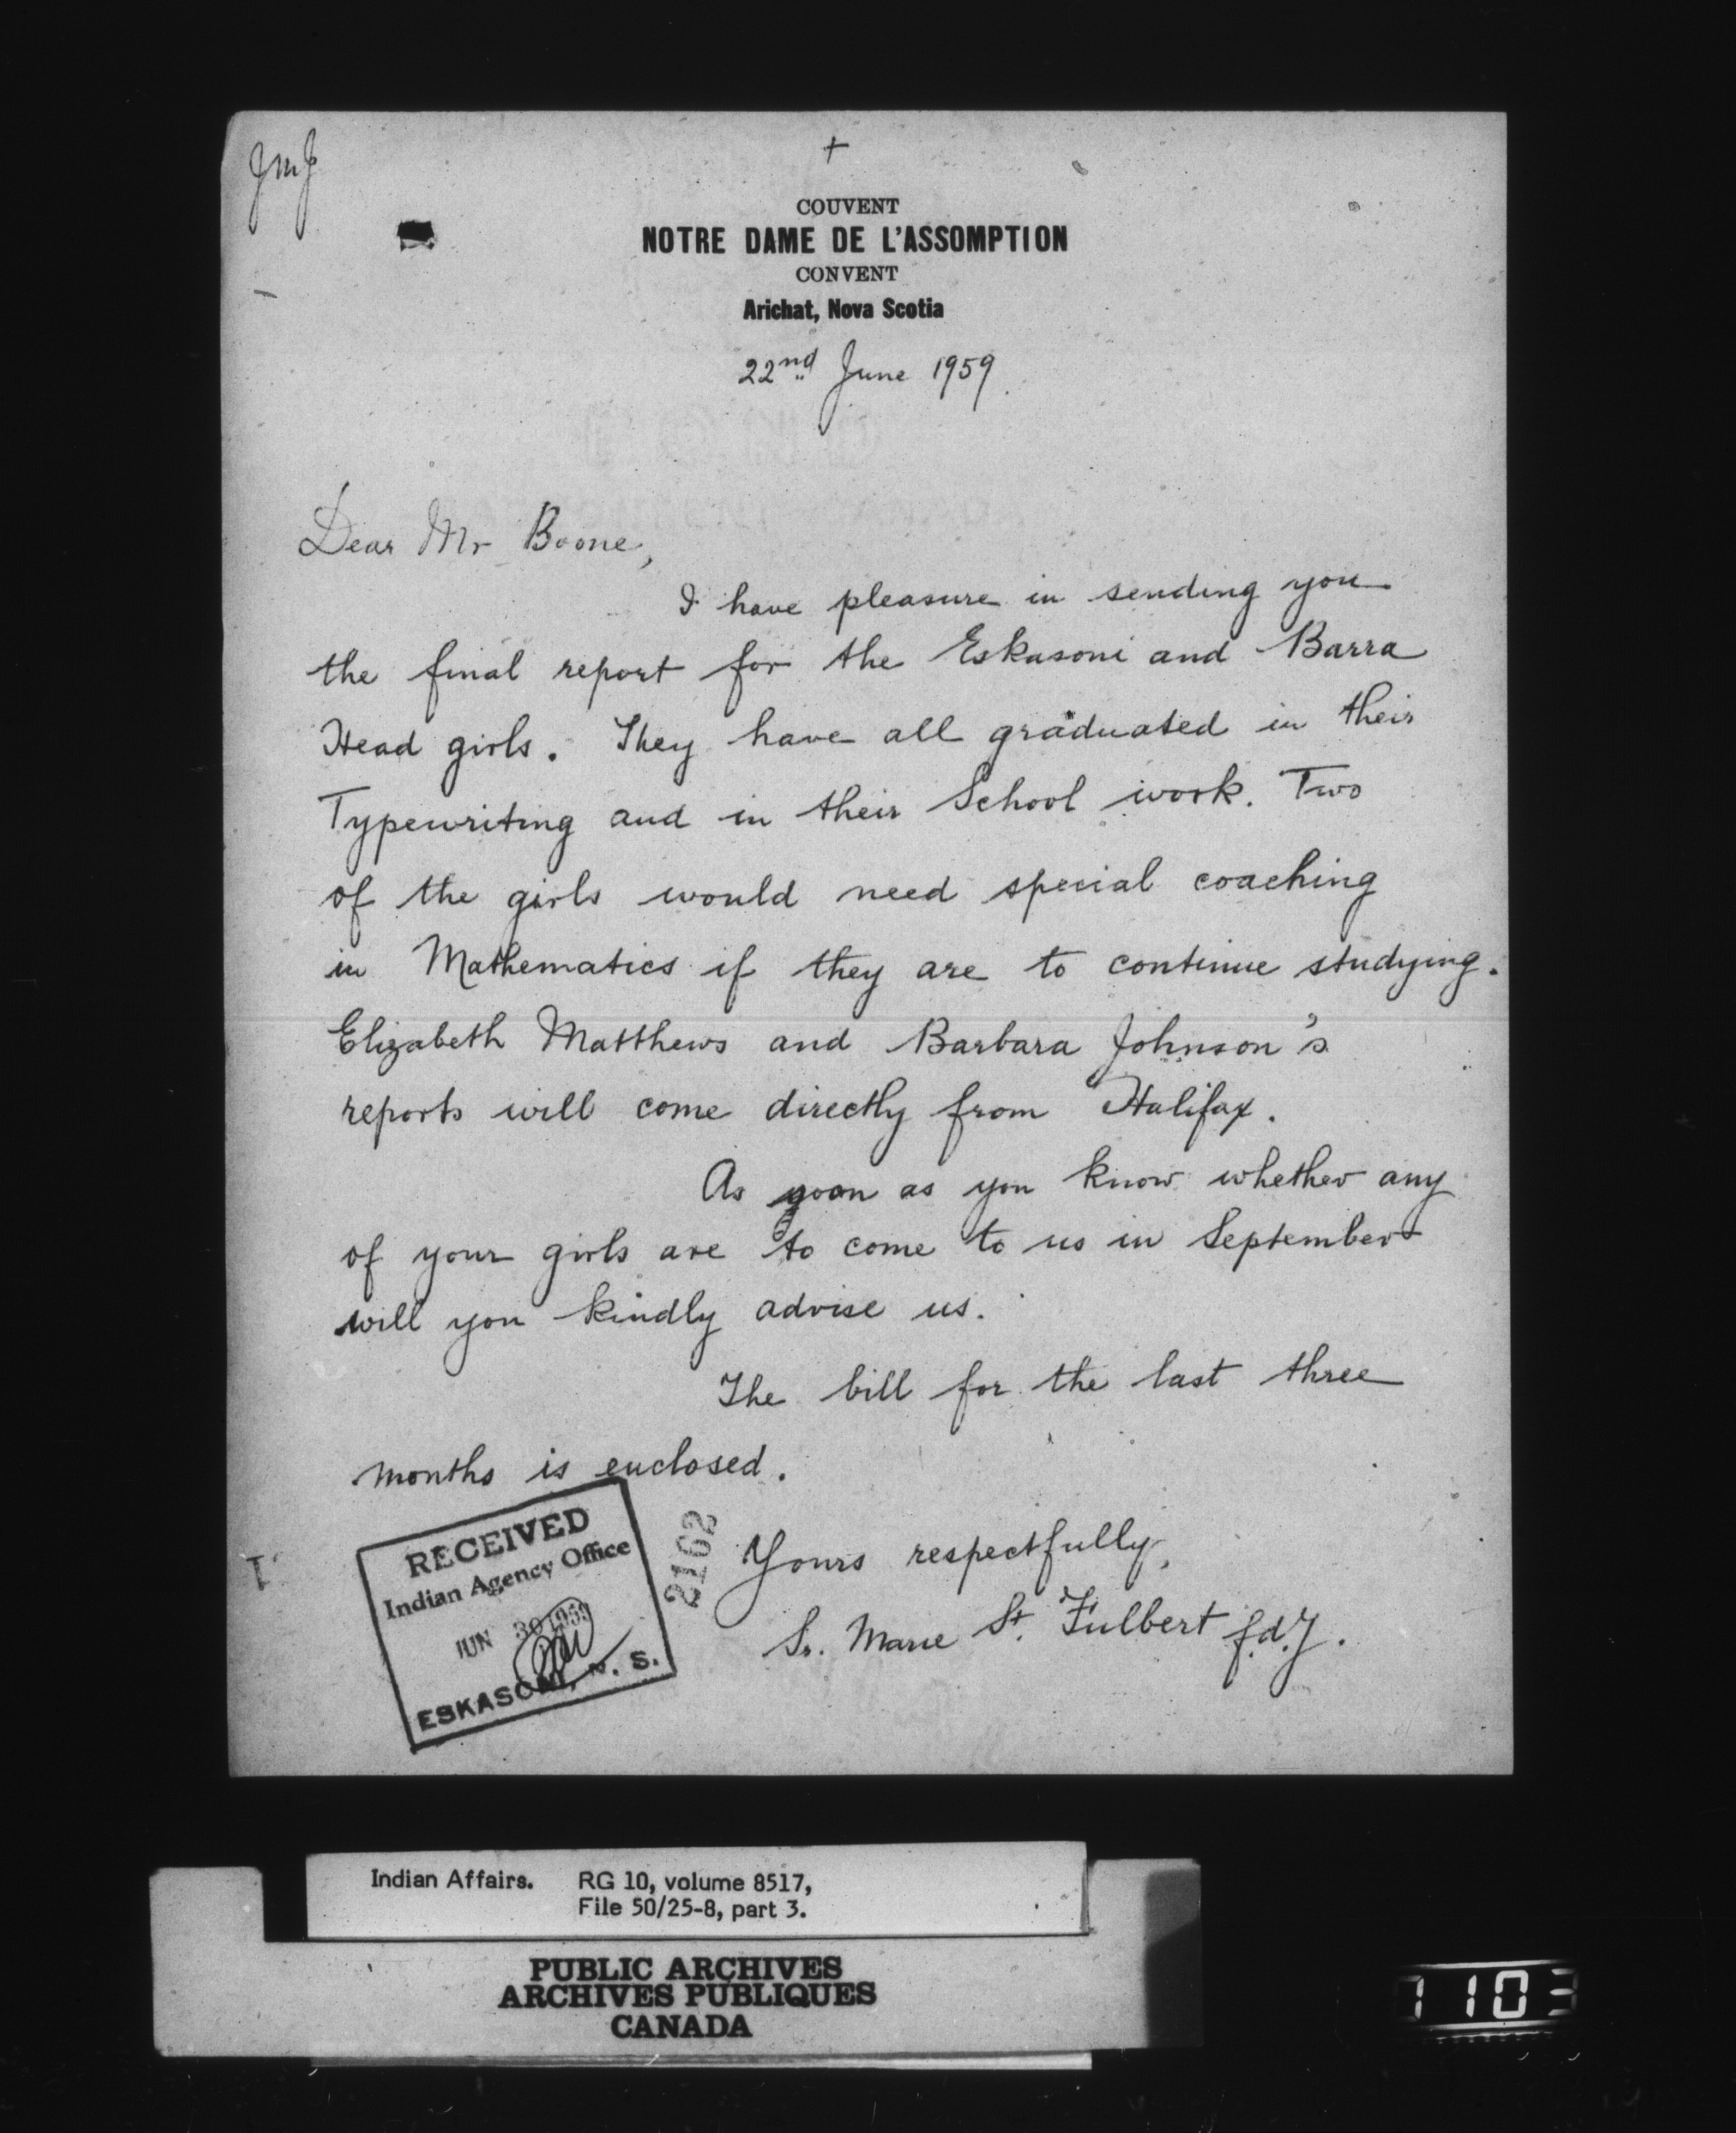 JMJ
+
COUVENT
NOTRE DAME DE L'ASSOMPTION
CONVENT
Arichat, Nova Scotia
22nd June 1959.
Dear Mr Boone,
I have pleasure in sending you
the final report for the Eskasoni and Barra
Head girls. They have all graduated in their
Typewriting and in their School work. Two
of the girls would need special coaching
in Mathematics if they are to continue studying.
Elizabeth Matthews and Barbara Johnson's
reports will come directly from Halifax.
As soon as you know whether any
of your girls are to come to us in September
will you kindly advise us.
The bill for the last three
months is enclosed.
Yours respectfully,
Sr. Marie St. Fulbert f.d.J.
RECEIVED
Indian Agency Office
JUN 30 1959
ESKASONI, N. S.
2162
Indian Affairs. RG 10, volume 8517,
File 50/25-8, part 3.
PUBLIC ARCHIVES
ARCHIVES PUBLIQUES
CANADA
1103